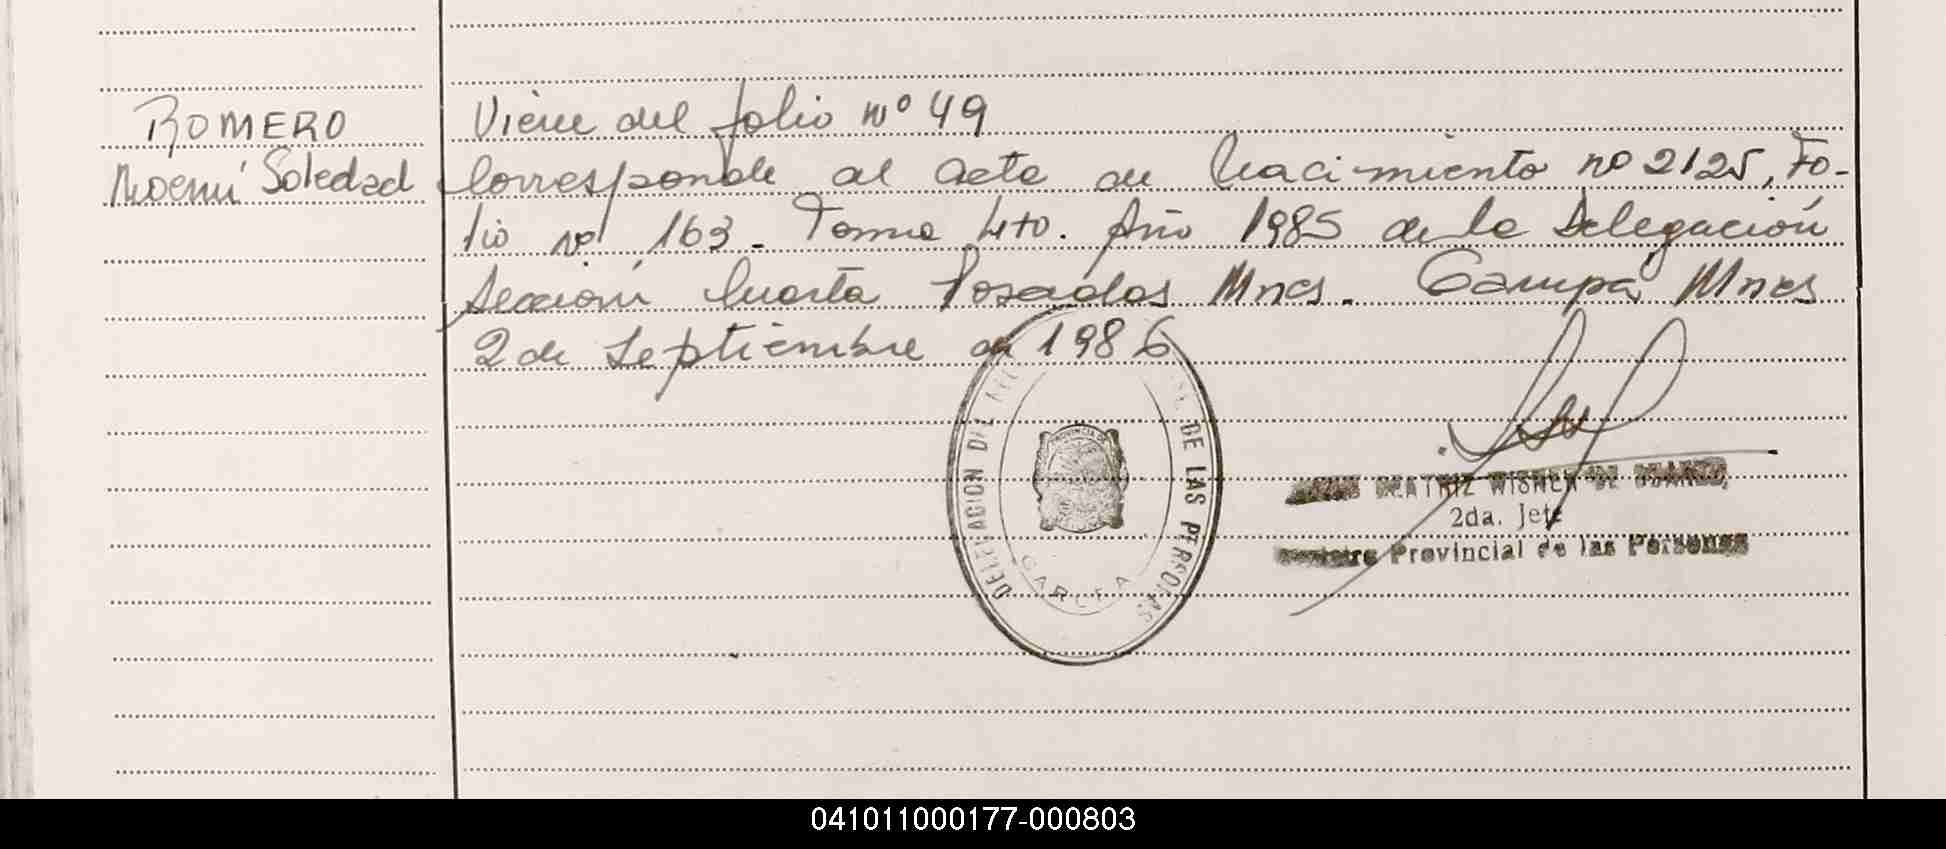 ROMERO
Noemí Soledad
Viene del folio nº 49
Corresponde al acta de Nacimiento nº 2125, Fo-
lio nº 163. Tomo 4to. Año 1985 de la Delegación
Sección Cuarta Posadas Mnes. Garupá Mnes
2 de Septiembre de 1986
DELEGACION DEL DE LAS PERSONAS
BEATRIZ WISNER DE
2da. Jefe
Provincial de las Personas
041011000177-000803